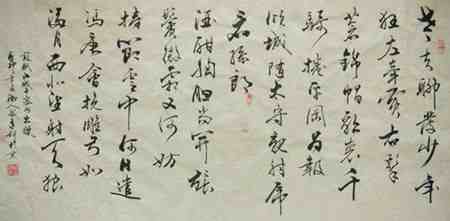 老夫聊發少年
狂左牽黃右擎
蒼錦帽貂裘千
騎捲平岡為報
傾城隨太守親射虎
看孫郎
酒酣胸膽尚開張
鬢微霜又何妨
持節雲中何日遣
馮唐會挽雕弓如
滿月西北望射天狼
蘇軾江城子密州出獵